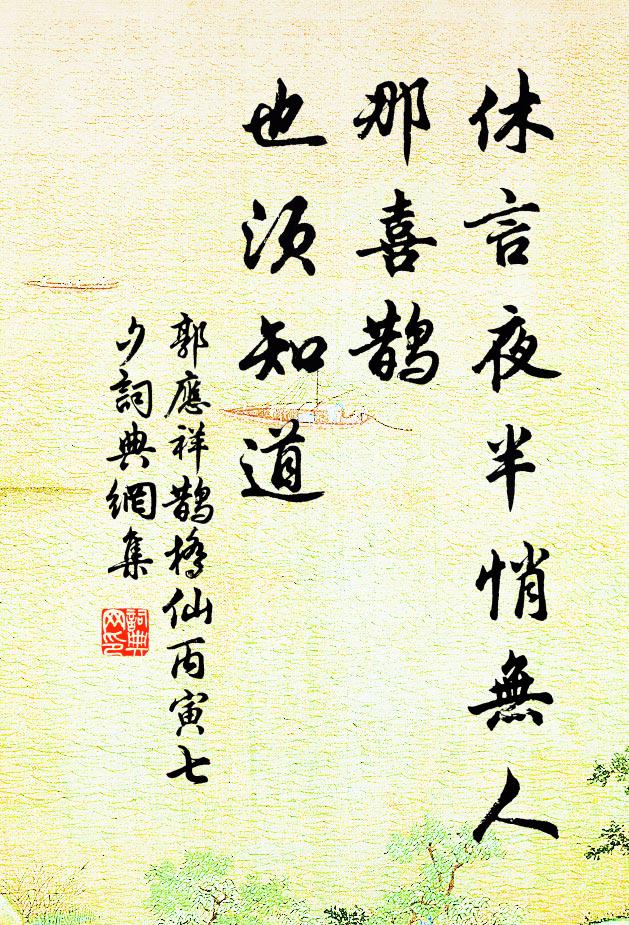 休言夜半悄無人
那喜鵲
也須知道
郭應祥鵲橋仙丙寅七
夕詞典網集
詞典
网印